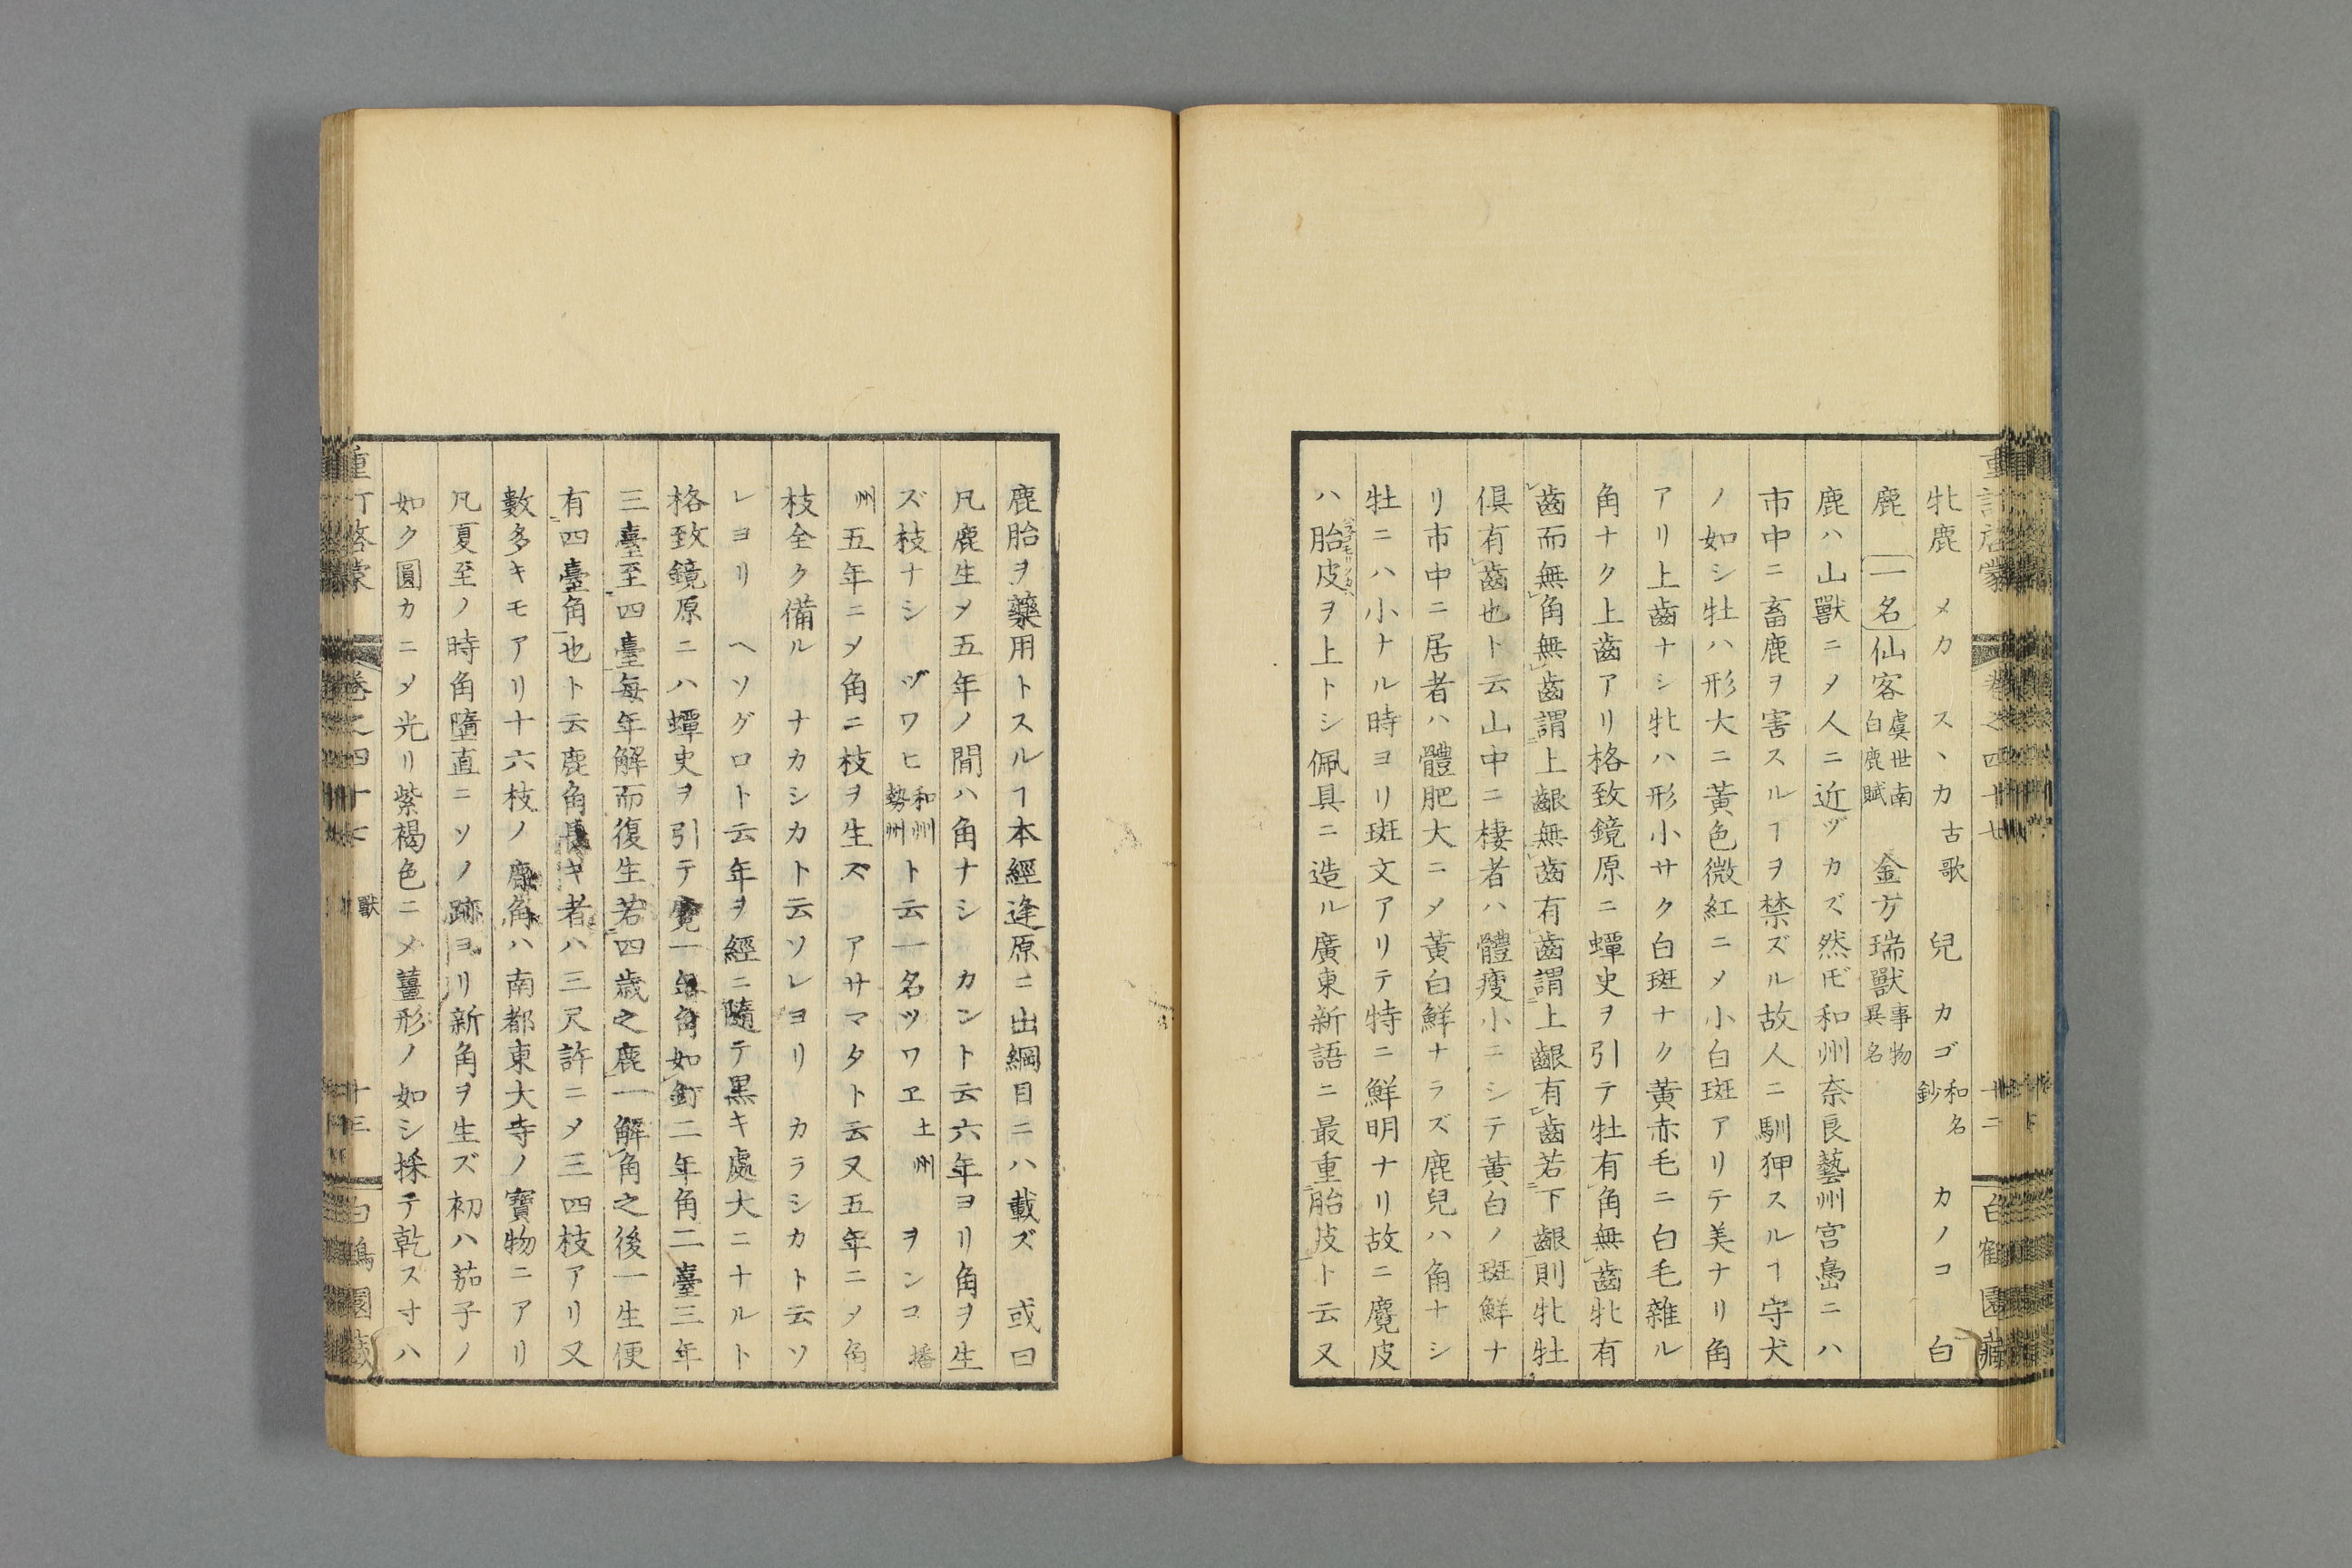 牝鹿　メカ　スヽカ古歌　兒　カゴ和名鈔　カノコ　白
鹿　一名　仙客虞世南白鹿賦　金方瑞獸事物異名
鹿ハ山獸ニ乄人ニ近ヅカズ然𪜈和州奈良藝州宮島ニハ
市中ニ畜鹿ヲ害スルヿヲ禁ズル故人ニ馴狎スルヿ守犬
ノ如シ牡ハ形大ニ黃色微紅ニ乄小白斑アリテ美ナリ角
アリ上齒ナシ牝ハ形小サク白斑ナク黃赤毛ニ白毛雜ル
角ナク上齒アリ格致鏡原ニ蟫史ヲ引テ牡有角無齒牝有
齒而無角無齒謂上齦無齒有齒謂上齦有齒若下齦則牝牡
俱有齒也ト云山中ニ棲者ハ體瘦小ニシテ黃白ノ斑鮮ナ
リ市中ニ居者ハ體肥大ニ乄黃白鮮ナラズ鹿兒ハ角ナシ
牡ニハ小ナル時ヨリ斑文アリテ特ニ鮮明ナリ故ニ麑皮
ハ胎皮ヲ上トシ佩具ニ造ル廣東新語ニ最重胎皮ト云又
鹿胎ヲ藥用トスルヿ本經逢原ニ出綱目ニハ載ズ　或曰
凡鹿生乄五年ノ間ハ角ナシ　カント云六年ヨリ角ヲ生
ズ枝ナシ　ヅワヒ和州勢州ト云一名ツワヱ土州　ヲンコ播
州五年ニ乄角ニ枝ヲ生ズ　アサマタト云又五年ニ乄角
枝全ク備ル　ナカシカト云ソレヨリ　カラシカト云ソ
レヨリ　ヘソグロト云年ヲ經ニ隨テ黑キ處大ニナルト
格致鏡原ニハ蟫史ヲ引テ麑一年角如釘二年角二臺三年
三臺至四臺每年解而復生若四歲之鹿一解角之後一生便
有四臺角也ト云鹿角長キ者ハ三尺許ニ乄三四枝アリ又
數多キモアリ十六枝ノ鹿角ハ南都東大寺ノ寶物ニアリ
凡夏至ノ時角墮直ニソノ跡ヨリ新角ヲ生ズ初ハ茄子ノ
如ク圓カニ乄光リ紫褐色ニ乄薑形ノ如シ採テ乾ス寸ハ